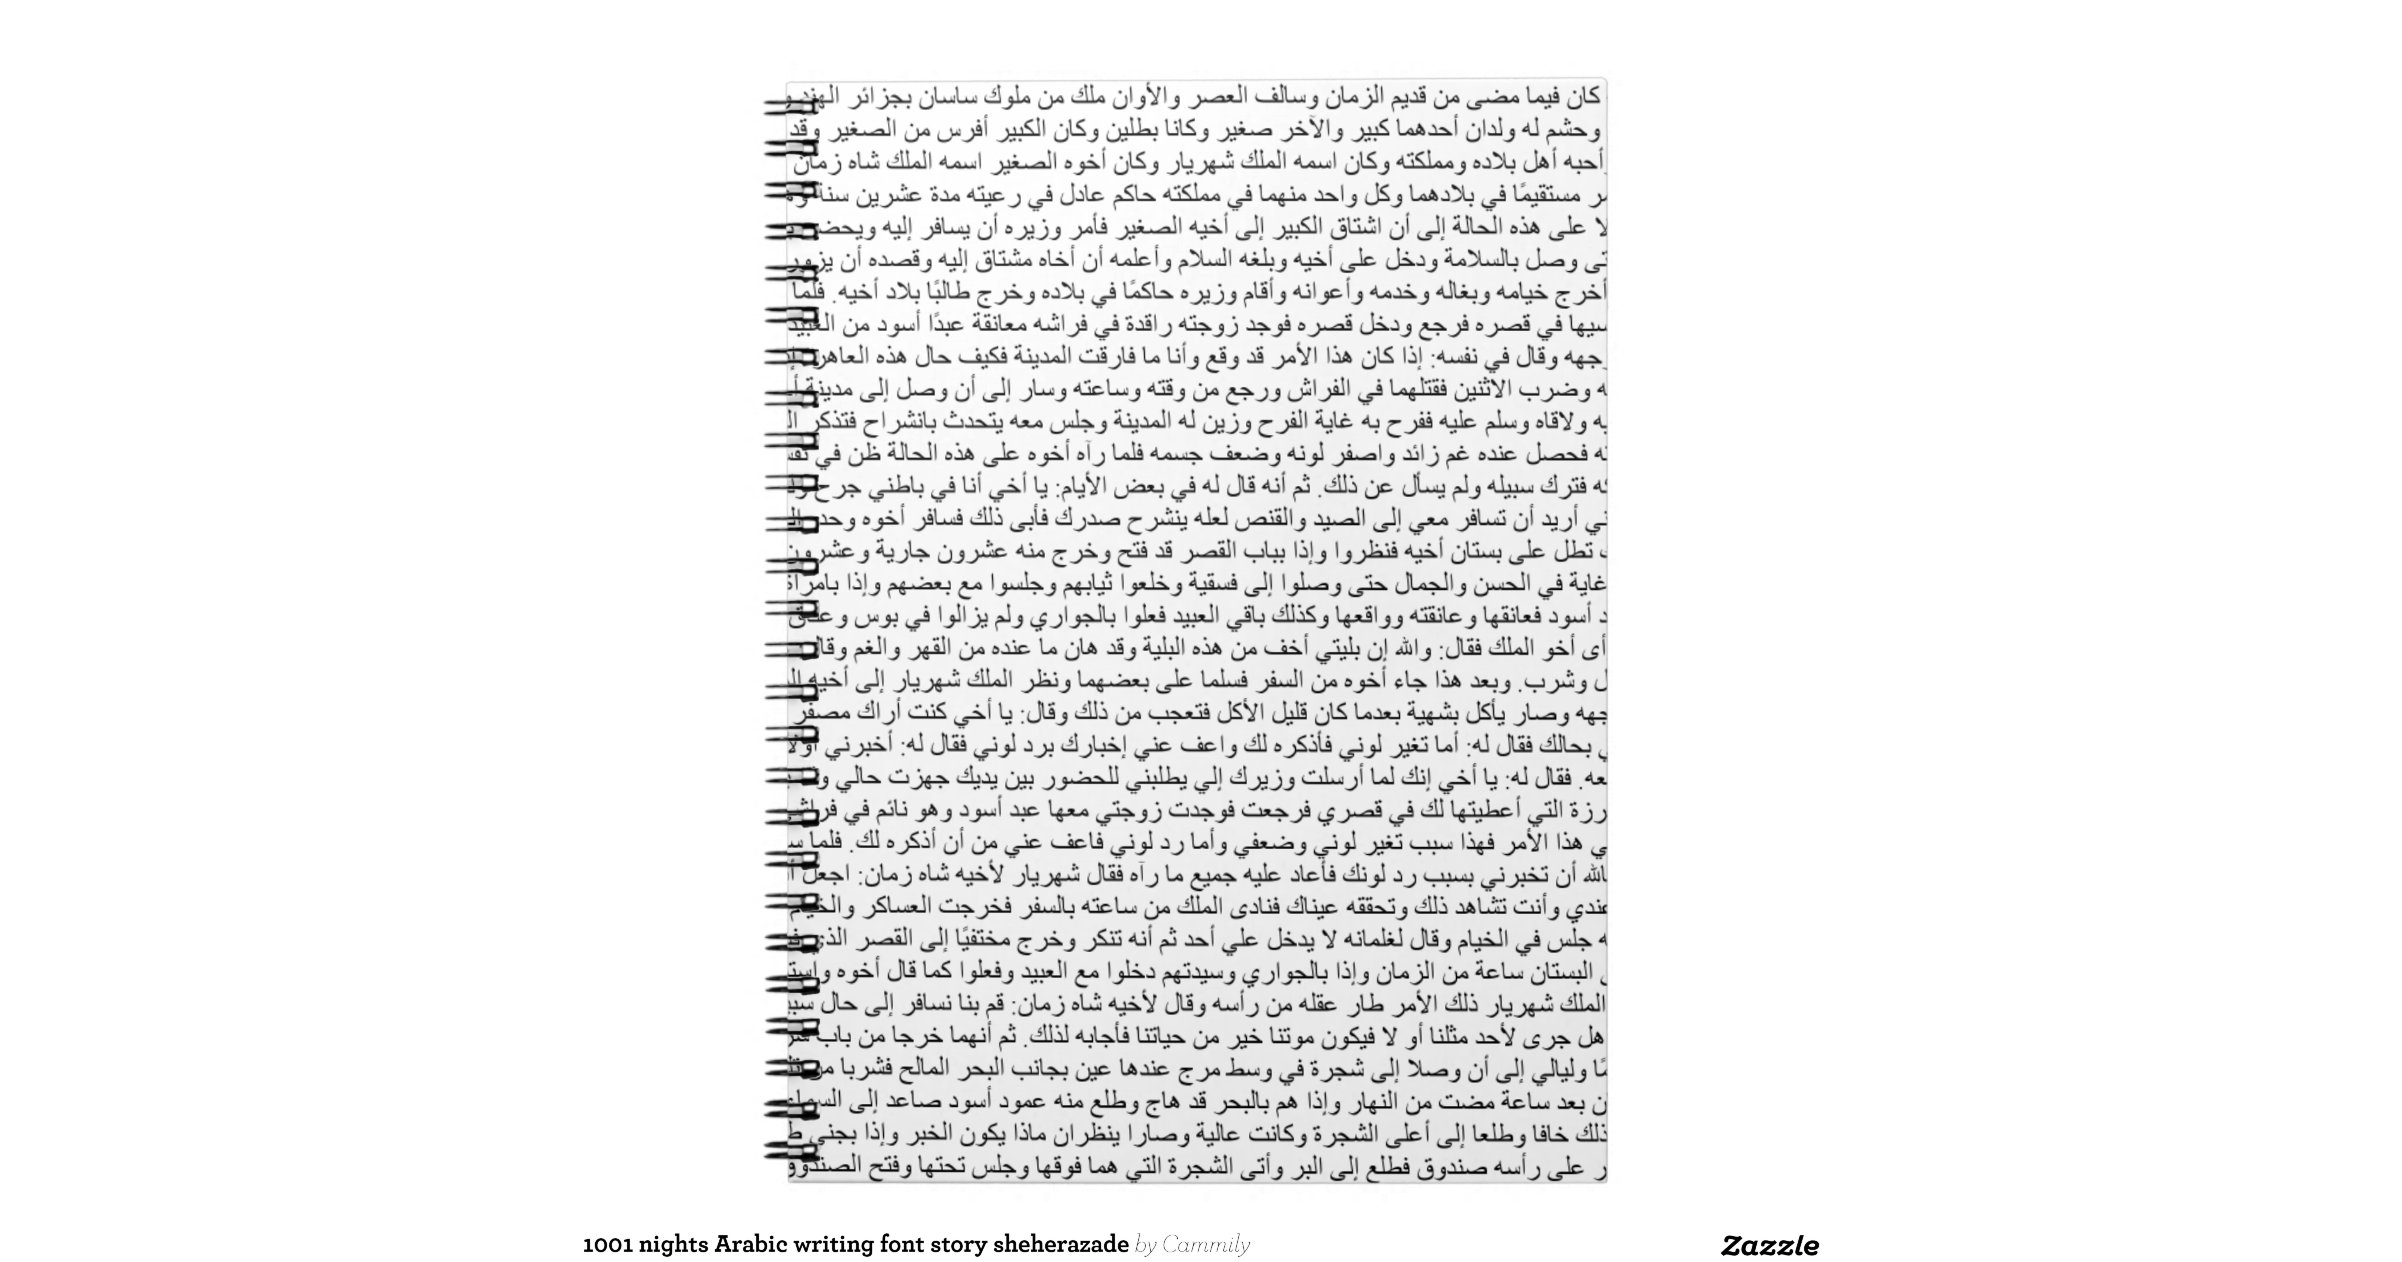 كان فيما مضى من قديم الزمان وسالف العصر والأوان ملك من ملوك ساسان بجزائر الهند و
وحشم له ولدان أحدهما كبير والآخر صغير وكانا بطلين وكان الكبير أفرس من الصغير وقد
أحبه أهل بلاده ومملكته وكان اسمه الملك شهريار وكان أخوه الصغير اسمه الملك شاه زمان
مر مستقيمًا في بلادهما وكل واحد منهما في مملكته حاكم عادل في رعيته مدة عشرين سنة
لا على هذه الحالة إلى أن اشتاق الكبير إلى أخيه الصغير فأمر وزيره أن يسافر إليه ويحضر
تى وصل بالسلامة ودخل على أخيه وبلغه السلام وأعلمه أن أخاه مشتاق إليه وقصده أن يزور
أخرج خيامه وبغاله وخدمه وأعوانه وأقام وزيره حاكمًا في بلاده وخرج طالبًا بلاد أخيه. فلما
سيها في قصره فرجع ودخل قصره فوجد زوجته راقدة في فراشه معانقة عبدًا أسود من العبيد
جهه وقال في نفسه: إذا كان هذا الأمر قد وقع وأنا ما فارقت المدينة فكيف حال هذه العاهر
ه وضرب الاثنين فقتلهما في الفراش ورجع من وقته وساعته وسار إلى أن وصل إلى مدينة أ
يه ولاقاه وسلم عليه ففرح به غاية الفرح وزين له المدينة وجلس معه يتحدث بانشراح فتذكر ال
ته فحصل عنده غم زائد واصفر لونه وضعف جسمه فلما رآه أخوه على هذه الحالة ظن في نفس
كه فترك سبيله ولم يسأل عن ذلك. ثم أنه قال له في بعض الأيام: يا أخي أنا في باطني جرح
ني أريد أن تسافر معي إلى الصيد والقنص لعله ينشرح صدرك فأبى ذلك فسافر أخوه وحده
تطل على بستان أخيه فنظروا وإذا بباب القصر قد فتح وخرج منه عشرون جارية وعشرون
غاية في الحسن والجمال حتى وصلوا إلى فسقية وخلعوا ثيابهم وجلسوا مع بعضهم وإذا بامرأة
د أسود فعانقها وعانقته وواقعها وكذلك باقي العبيد فعلوا بالجواري ولم يزالوا في بوس وعناق
أى أخو الملك فقال: والله إن بليتي أخف من هذه البلية وقد هان ما عنده من القهر والغم وقال
ل وشرب. وبعد هذا جاء أخوه من السفر فسلما على بعضهما ونظر الملك شهريار إلى أخيه ال
جهه وصار يأكل بشهية بعدما كان قليل الأكل فتعجب من ذلك وقال: يا أخي كنت أراك مصفر
ي بحالك فقال له: أما تغير لوني فأذكره لك واعف عني إخبارك برد لوني فقال له: أخبرني أولا
عه. فقال له: يا أخي إنك لما أرسلت وزيرك إلي يطلبني للحضور بين يديك جهزت حالي
رزة التي أعطيتها لك في قصري فرجعت فوجدت زوجتي معها عبد أسود وهو نائم في فراش
ي هذا الأمر فهذا سبب تغير لوني وضعفي وأما رد لوني فاعف عني من أن أذكره لك. فلما س
الله أن تخبرني بسبب رد لونك فأعاد عليه جميع ما رآه فقال شهريار لأخيه شاه زمان: اجعل أ
عندي وأنت تشاهد ذلك وتحققه عيناك فنادى الملك من ساعته بالسفر فخرجت العساكر والخيام
ه جلس في الخيام وقال لغلمانه لا يدخل علي أحد ثم أنه تنكر وخرج مختفيًا إلى القصر الذي ف
البستان ساعة من الزمان وإذا بالجواري وسيدتهم دخلوا مع العبيد وفعلوا كما قال أخوه واست
الملك شهريار ذلك الأمر طار عقله من رأسه وقال لأخيه شاه زمان: قم بنا نسافر إلى حال سبي
هل جرى لأحد مثلنا أو لا فيكون موتنا خير من حياتنا فأجابه لذلك. ثم أنهما خرجا من باب
مًا وليالي إلى أن وصلا إلى شجرة في وسط مرج عندها عين بجانب البحر المالح فشربا من
ن بعد ساعة مضت من النهار وإذا هم بالبحر قد هاج وطلع منه عمود أسود صاعد إلى السماء
ذلك خافا وطلعا إلى أعلى الشجرة وكانت عالية وصارا ينظران ماذا يكون الخبر وإذا بجني ط
ر على رأسه صندوق فطلع إلى البر وأتى الشجرة التي هما فوقها وجلس تحتها وفتح الصندوق
1001 nights Arabic writing font story sheherazade by Cammily
Zazzle